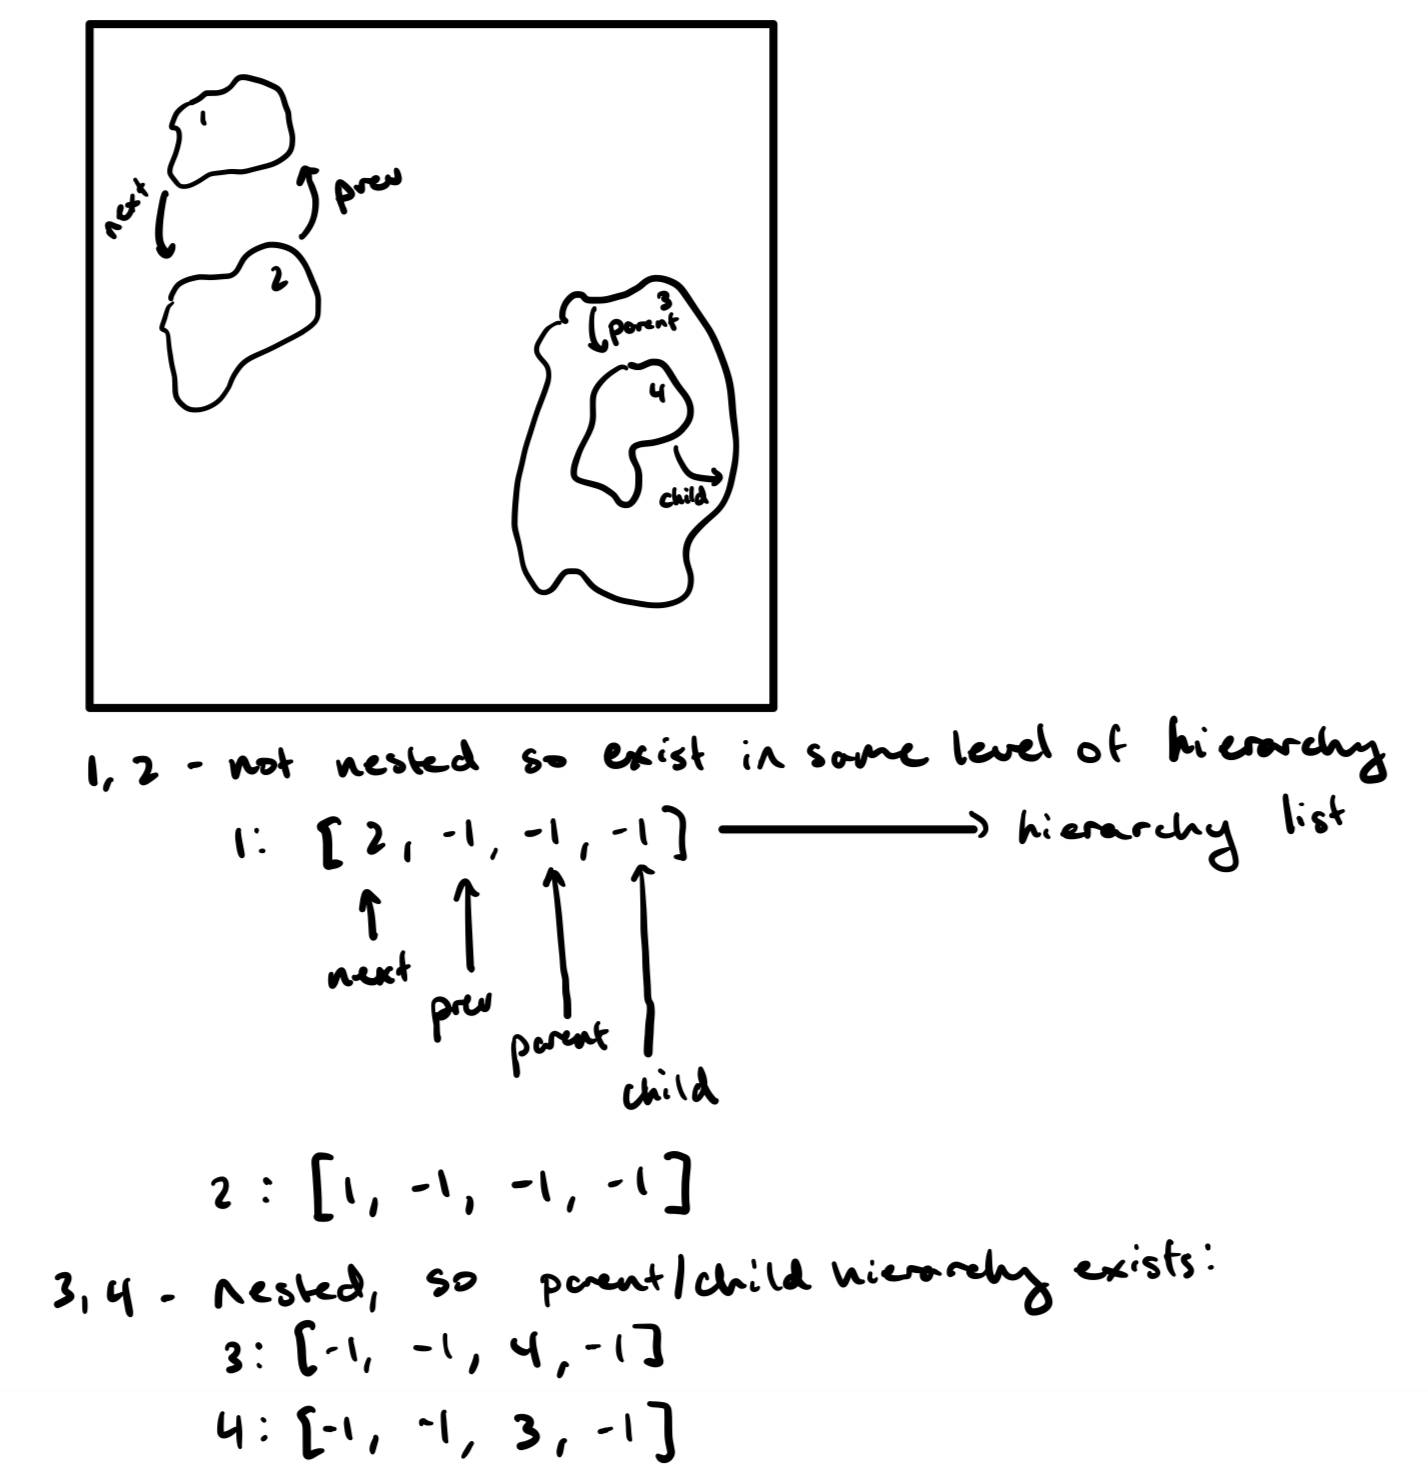 1
next
prev
2
3
parent
4
child
1, 2 - not nested so exist in same level of hierarchy
1: [2, -1, -1, -1] → hierarchy list
next
prev
parent
child
2: [1, -1, -1, -1]
3, 4 - nested, so parent/child hierarchy exists:
3: [-1, -1, 4, -1]
4: [-1, -1, 3, -1]